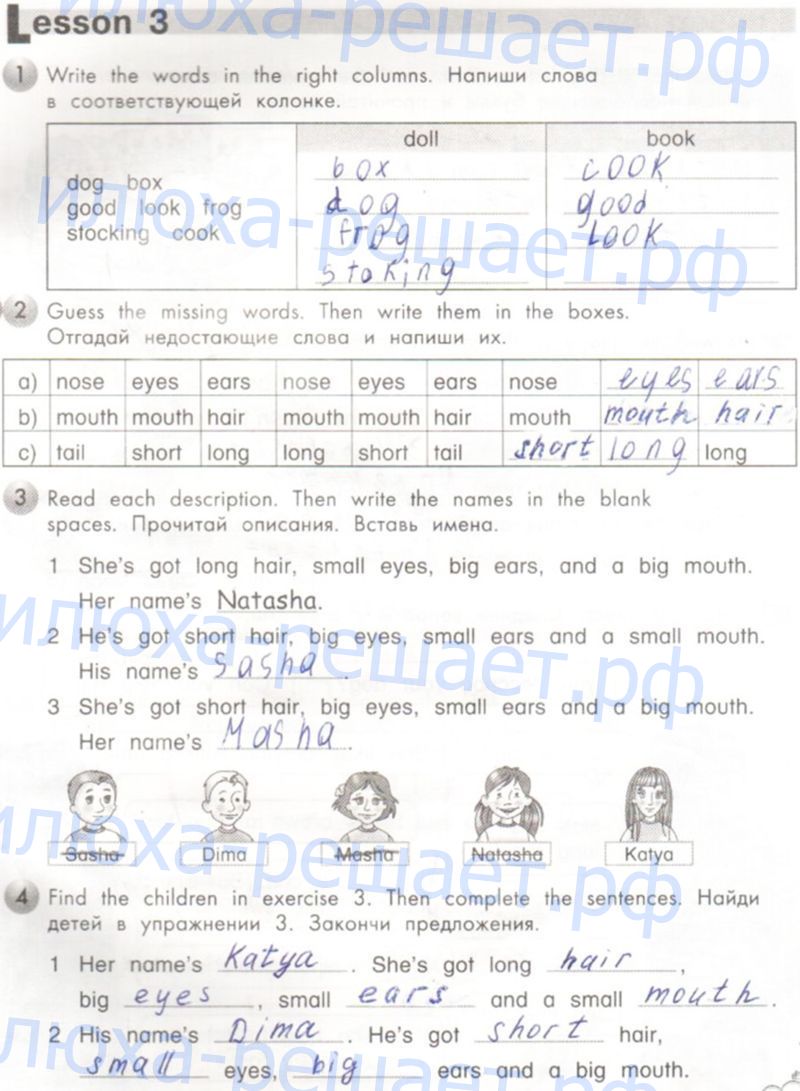 Lesson 3
1 Write the words in the right columns. Напиши слова
в соответствующей колонке.
doll book
dog box
good look frog
stocking cook
box cook
dog good
frog look
stoking
2 Guess the missing words. Then write them in the boxes.
Отгадай недостающие слова и напиши их.
a) nose eyes ears nose eyes ears nose eyes ears
b) mouth mouth hair mouth mouth hair mouth mouth hair
c) tail short long long short tail short long long
3 Read each description. Then write the names in the blank
spaces. Прочитай описания. Вставь имена.
1 She's got long hair, small eyes, big ears, and a big mouth.
Her name's Natasha.
2 He's got short hair, big eyes, small ears and a small mouth.
His name's Sasha.
3 She's got short hair, big eyes, small ears and a big mouth.
Her name's Masha.
Sasha Dima Masha Natasha Katya
4 Find the children in exercise 3. Then complete the sentences. Найди
детей в упражнении 3. Закончи предложения.
1 Her name's Katya. She's got long hair,
big eyes, small ears and a small mouth.
2 His name's Dima. He's got short hair,
small eyes, big ears and a big mouth.
илюха-решает.рф
илюха-решает.рф
илюха-решает.рф
илюха-решает.рф
илюха-решает.рф